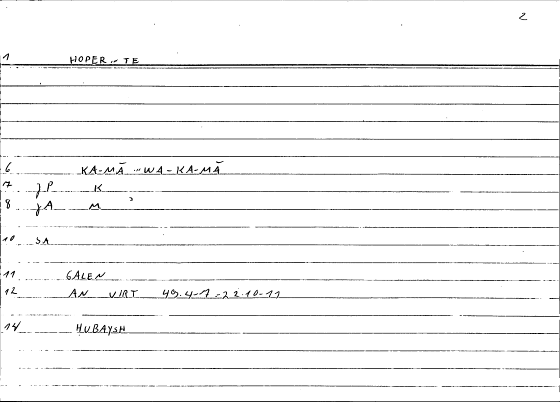 2
1 HOPER .. TE
6 KA-MĀ -WA-KA-MĀ
7 JP K
8 JA M ʾ
10 SA
11 GALEN
12 AN VIRT 49.4-7-22.10-11
14 HUBAYSH